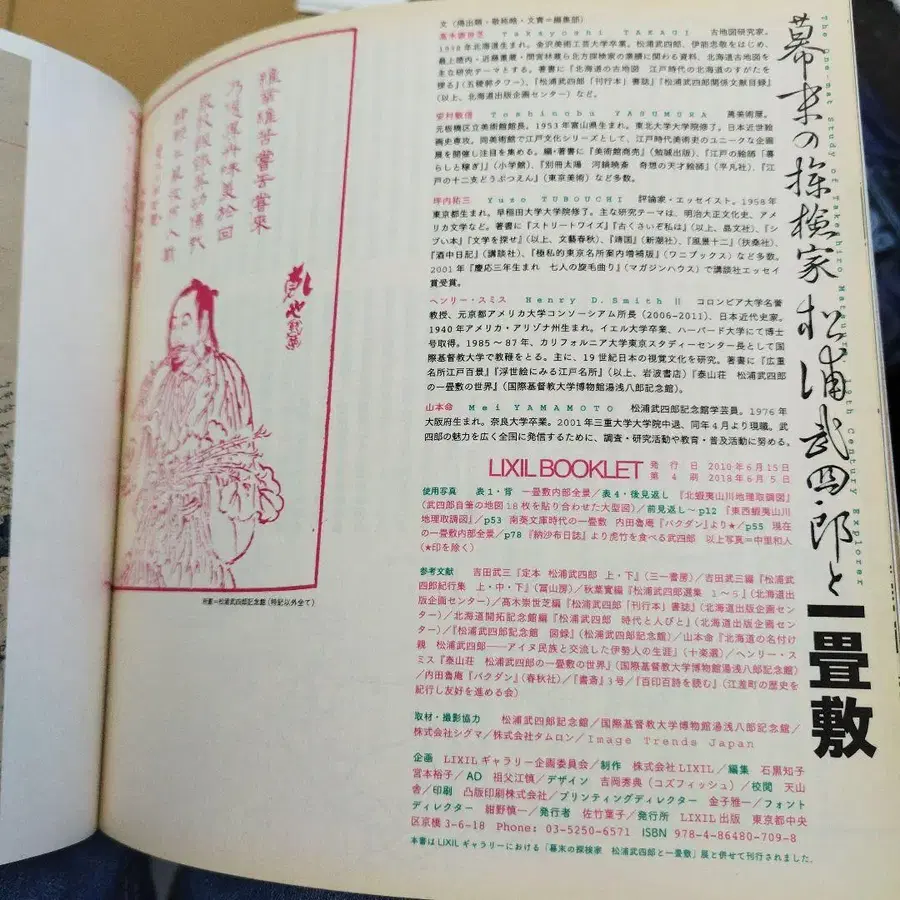 幕末の探検家 松浦武四郎と一畳敷
The One-mat Study of Takeshiro Matsuura, 19th Century Explorer
文（掲出順・敬称略・文責＝編集部）
高木崇世芝 Takayoshi TAKAGI 古地図研究家。
1938年北海道生まれ。金沢美術工芸大学卒業。松浦武四郎、伊能忠敬をはじめ、
最上徳内・近藤重蔵・間宮林蔵ら北方探検家の業績に関わる資料、北海道古地図を
主な研究テーマとする。著書に『北海道の古地図 江戸時代の北海道のすがたを
探る』（五稜郭タワー）、『松浦武四郎「刊行本」書誌』『松浦武四郎関係文献目録』
（以上、北海道出版企画センター）など。
安村敏信 Toshinobu YASUMURA 萬美術屋。
元板橋区立美術館館長。1953年富山県生まれ。東北大学大学院修了。日本近世絵
画史専攻。同美術館で江戸文化シリーズとして、江戸時代美術史のユニークな企画
展を開催し注目を集める。編・著書に『美術館商売』（勉誠出版）、『江戸の絵師「暮
らしと稼ぎ」』（小学館）、『別冊太陽 河鍋暁斎 奇想の天才絵師』（平凡社）、『江
戸の十二支どうぶつえん』（東京美術）など多数。
坪内祐三 Yuzo TUBOUCHI 評論家・エッセイスト。1958年
東京都生まれ。早稲田大学大学院修了。主な研究テーマは、明治大正文化史、アメ
リカ文学など。著書に『ストリートワイズ』『古くさいぞ私は』（以上、晶文社）、『シ
ブい本』『文学を探せ』（以上、文藝春秋）、『靖国』（新潮社）、『風景十二』（扶桑社）、
『酒中日記』（講談社）、『極私的東京名所案内増補版』（ワニブックス）など多数。
2001年『慶応三年生まれ 七人の旋毛曲り』（マガジンハウス）で講談社エッセイ
賞受賞。
ヘンリー・スミス Henry D. Smith Ⅱ コロンビア大学名誉
教授、元京都アメリカ大学コンソーシアム所長（2006-2011）、日本近代史家。
1940年アメリカ・アリゾナ州生まれ。イエール大学卒業、ハーバード大学にて博士
号取得。1985～87年、カリフォルニア大学東京スタディーセンター長として国
際基督教大学で教鞭をとる。主に、19世紀日本の視覚文化を研究。著書に『広重
名所江戸百景』『浮世絵にみる江戸名所』（以上、岩波書店）『泰山荘 松浦武四郎
の一畳敷の世界』（国際基督教大学博物館湯浅八郎記念館）。
山本命 Mei YAMAMOTO 松浦武四郎記念館学芸員。1976年
大阪府生まれ。奈良大学卒業。2001年三重大学大学院中退、同年4月より現職。武
四郎の魅力を広く全国に発信するために、調査・研究活動や教育・普及活動に努める。
LIXIL BOOKLET 発行日 2010年6月15日
第4刷 2018年6月5日
使用写真 表1・背 一畳敷内部全景／表4・後見返し 『北蝦夷山川地理取調図』
（武四郎自筆の地図18枚を貼り合わせた大型図）／前見返し～p12 『東西蝦夷山川
地理取調図』／p53 南葵文庫時代の一畳敷 内田魯庵『バクダン』より★／p55 現在
の一畳敷内部全景／p78 『納沙布日誌』より虎竹を食べる武四郎 以上写真＝中里和人
（★印を除く）
参考文献 吉田武三『定本 松浦武四郎 上・下』（三一書房）／吉田武三編『松浦武
四郎紀行集 上・中・下』（冨山房）／秋葉實編『松浦武四郎選集 1～5』（北海道出
版企画センター）／高木崇世芝編『松浦武四郎「刊行本」書誌』（北海道出版企画セン
ター）／北海道開拓記念館編『松浦武四郎 時代と人びと』（北海道出版企画セン
ター）／『松浦武四郎記念館 図録』（松浦武四郎記念館）／山本命『北海道の名付け
親 松浦武四郎――アイヌ民族と交流した伊勢人の生涯』（十楽選）／ヘンリー・ス
ミス『泰山荘 松浦武四郎の一畳敷の世界』（国際基督教大学博物館湯浅八郎記念館）
／内田魯庵『バクダン』（春秋社）／『書斎』3号／『百印百詩を読む』（江差町の歴史を
紀行し友好を進める会）
取材・撮影協力 松浦武四郎記念館／国際基督教大学博物館湯浅八郎記念館／
株式会社シグマ／株式会社タムロン／Image Trends Japan
企画 LIXILギャラリー企画委員会／制作 株式会社LIXIL／編集 石黒知子
宮本裕子／AD 祖父江慎／デザイン 吉岡秀典（コズフィッシュ）／校閲 天山
舎／印刷 凸版印刷株式会社／プリンティングディレクター 金子雅一／フォント
ディレクター 紺野慎一／発行者 佐竹葉子／発行所 LIXIL出版 東京都中央
区京橋3-6-18 Phone: 03-5250-6571 ISBN 978-4-86480-709-8
本書はLIXILギャラリーにおける「幕末の探検家 松浦武四郎と一畳敷」展と併せて刊行されました。
所蔵＝松浦武四郎記念館（特記以外全て）